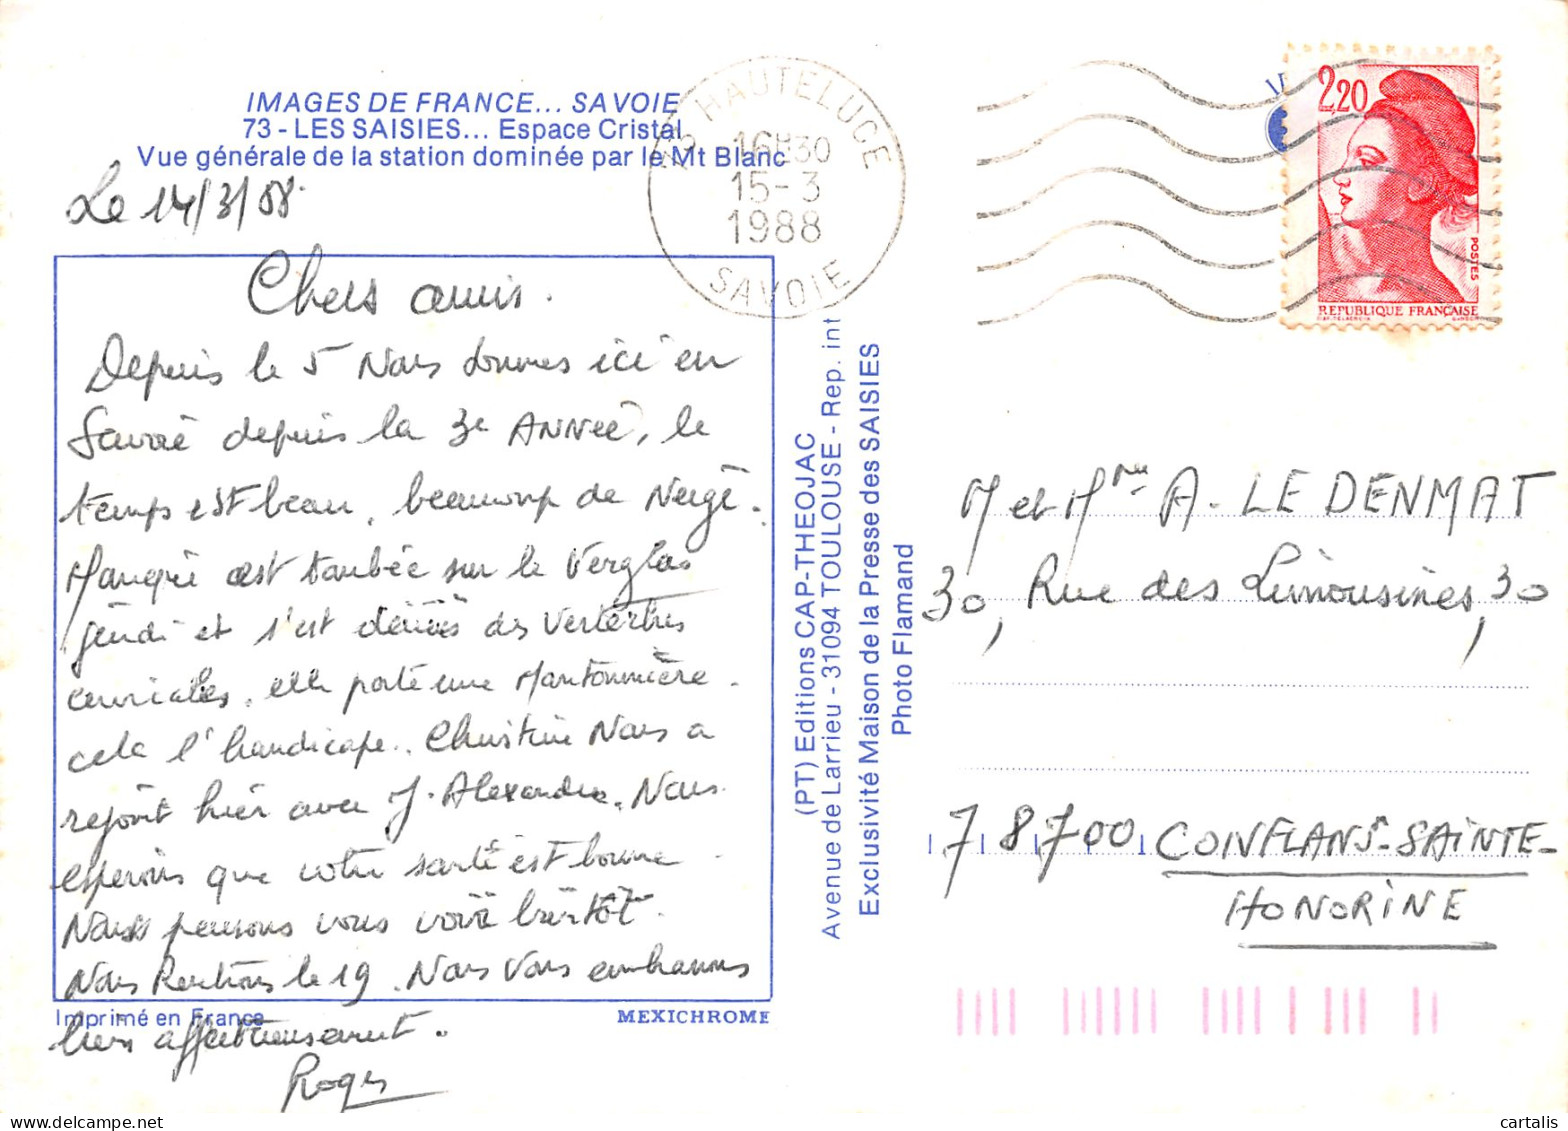 IMAGES DE FRANCE... SAVOIE
73 - LES SAISIES... Espace Cristal
Vue générale de la station dominée par le Mt Blanc
Le 14/3/88.
Chers amis.
Depuis le 5 Nous sommes ici en
Savoie depuis la 3e ANNéé, le
temps est beau, beaucoup de Neige.
est tombée sur le Verglas
jeudi et s'est des Vertèbres
cervicales. elle porte une
cela l'handicape. Christine Nous a
rejoint hier avec J. Alexandre. Nous
espérons que votre santé est bonne.
Nous pensons vous voir bientôt.
Nous Rentrons le 19. Nous Vous embrassons
bien affectueusement.
Roger
Imprimé en France
MEXICHROME
73 HAUTELUCE
16H30
15-3
1988
SAVOIE
(PT) Editions CAP-THEOJAC
Avenue de Larrieu - 31094 TOULOUSE - Rep. int
Exclusivité Maison de la Presse des SAISIES
Photo Flamand
2,20
POSTES
REPUBLIQUE FRANÇAISE
M et Mme A. LE DENMAT
30, Rue des Limousines, 30
78700 CONFLANS-SAINTE-
HONORINE
cartalis